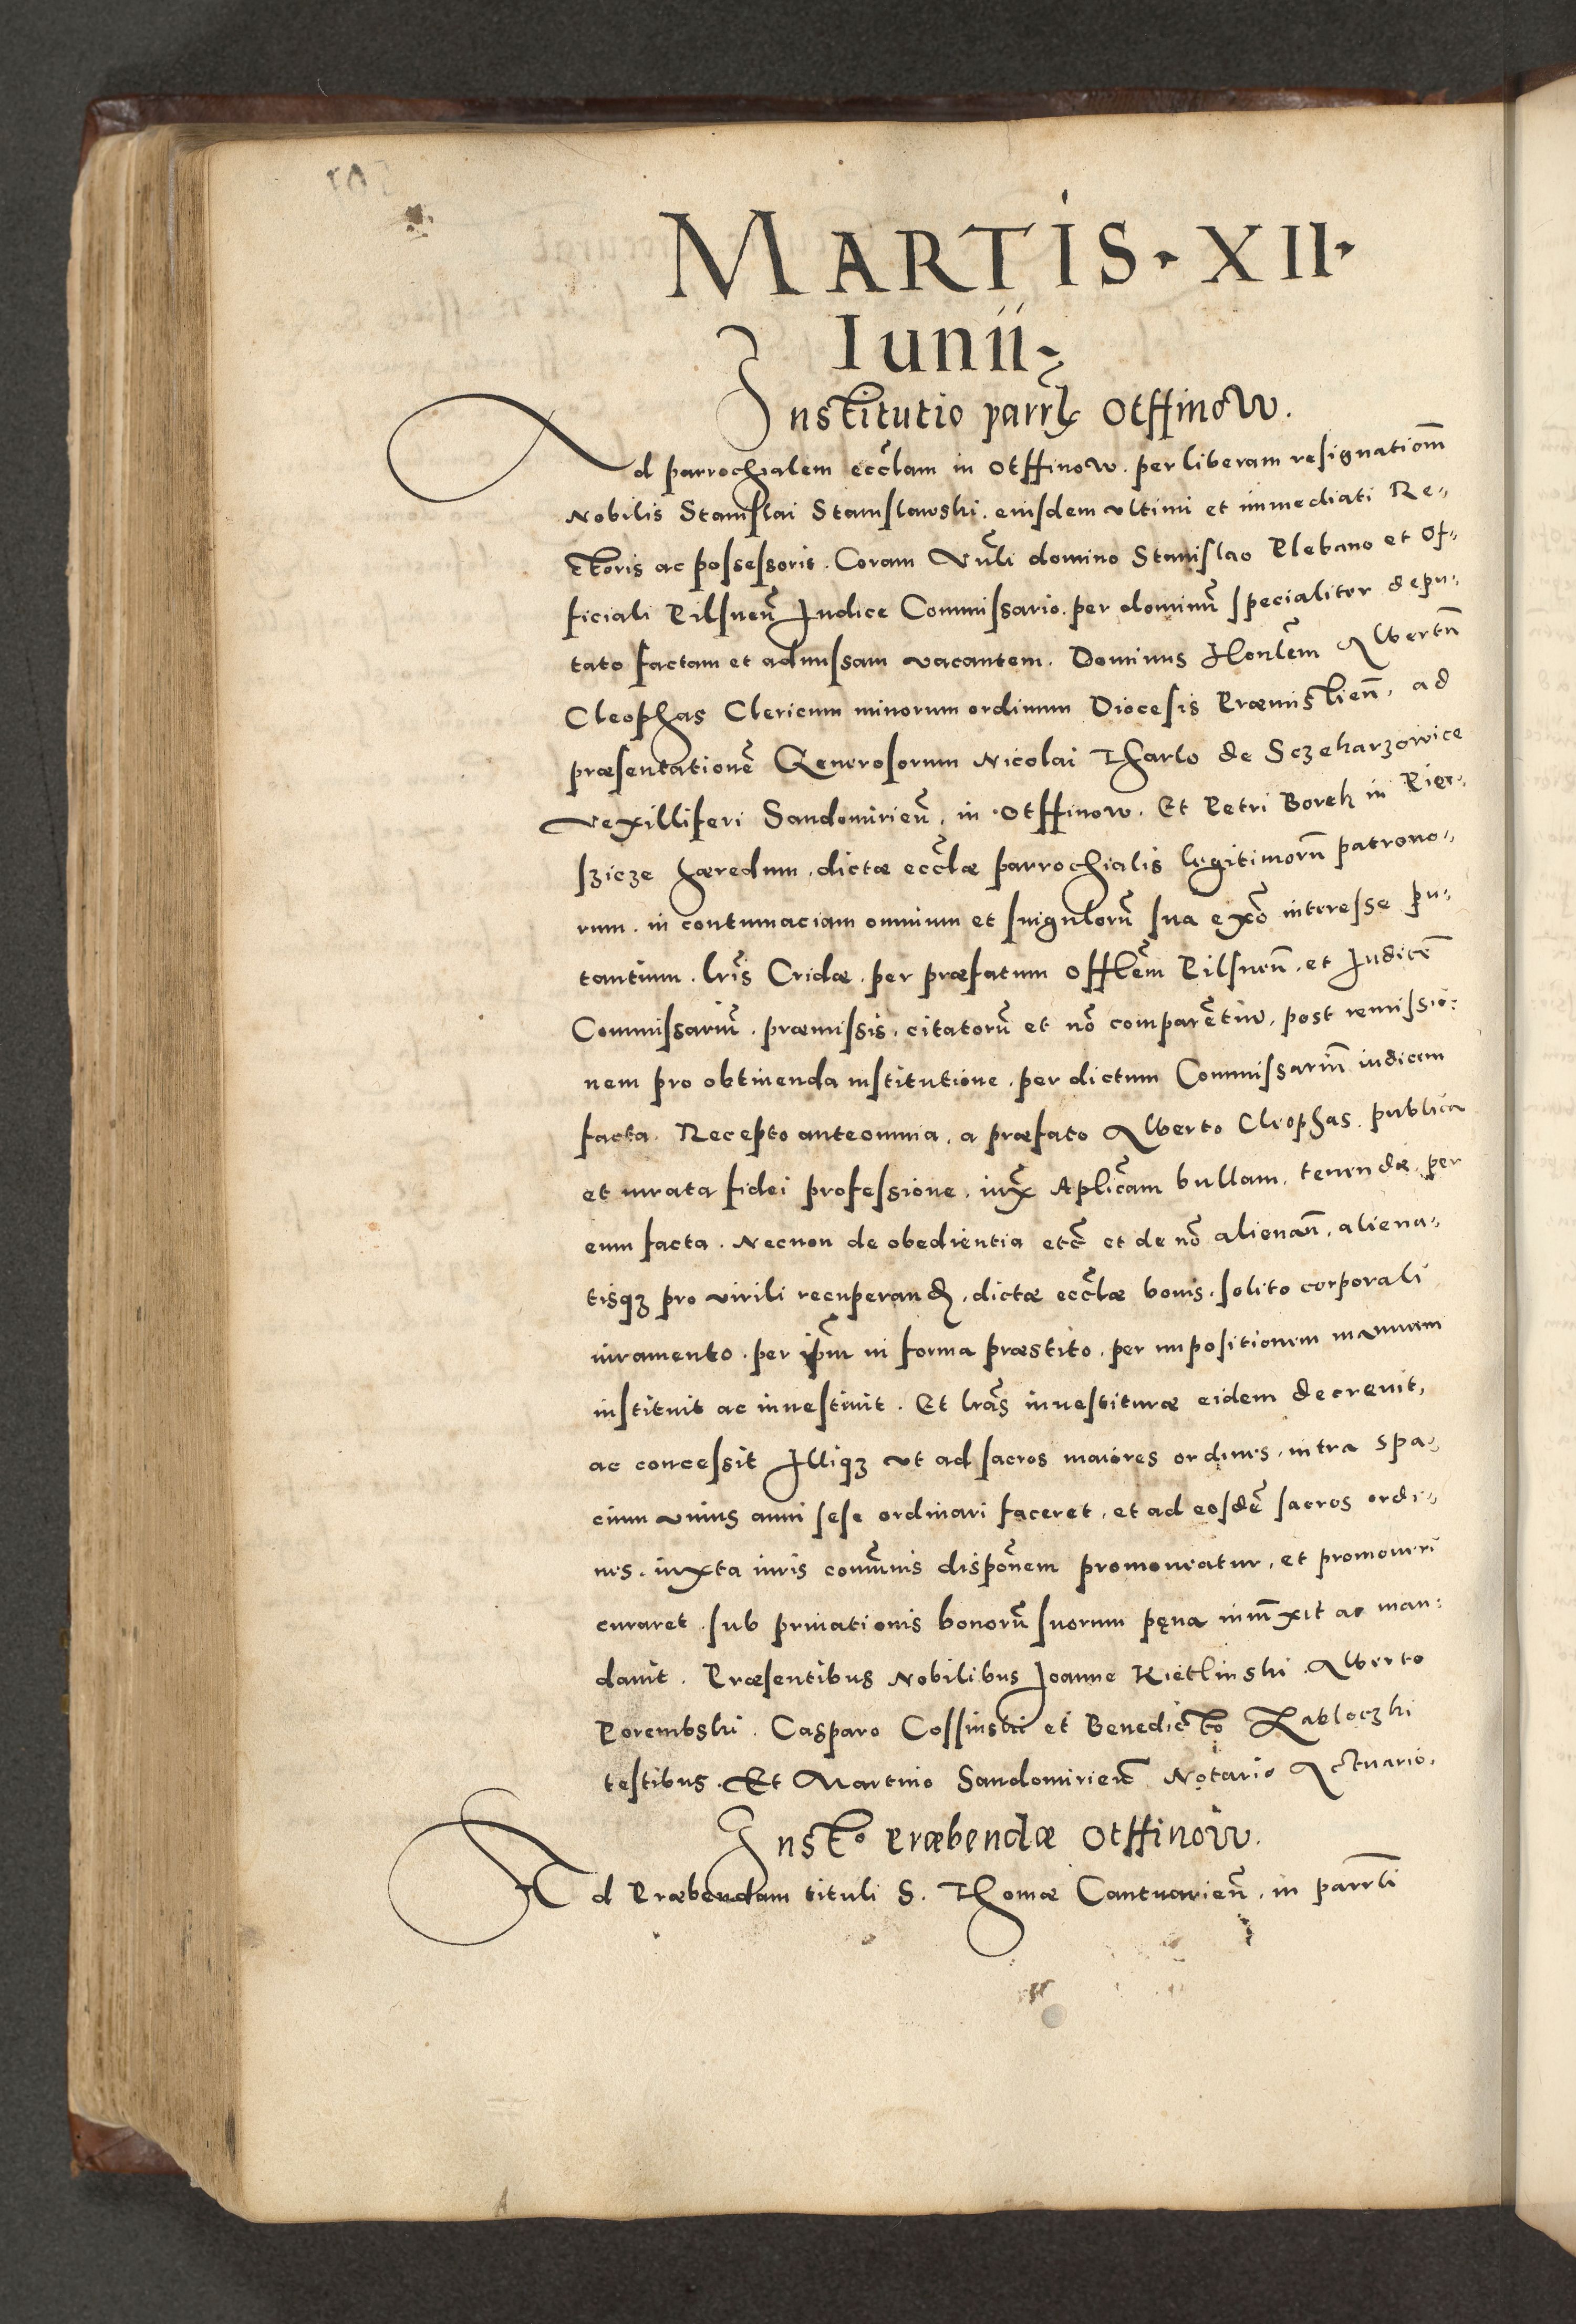 MARTIS · XII ·
Iunii
Institutio parrlis Otffinow.
Ad parrochialem eccl̃am in Otffinow. per liberam resignatiom̃
Nobilis Stanislai Stanislawski. eiusdem ultimi et immediati Re„
ctoris ac possessoris. Coram Vñli domino Stanislao Plebano et Of„
ficiali Pilsneñ Iudice Commissario. per dominũ specialiter depu„
tato factam et admissam vacantem. Dominus Honlẽm Albertũ
Cleophas Clericum minorum ordinum Diocesis Præmislieñ. ad
præsentationẽ Generosorum Nicolai Tharlo de Sczekarzowice
Vexilliferi Sandomirieñ. in Otffinow. Et Petri Borek in Pier„
szicze hæredum. dictæ eccl̃æ parrochialis legitimorũ patrono„
rum. in contumaciam omnium et singulorũ sua ex̃o interesse pu„
tantium. lr̃is Cridæ. per præfatum Offl̃em Pilsneñ. et Iudicẽ
Commissariũ. præmissis. citatorũ et nõ comparẽtiũ. post remissio„
nem pro obtinenda institutione. per dictum Commissariũ iudicem
facta. Recepto anteomnia. a præfato Alberto Cleophas. publica
et iurata fidei professione. iux̃ Aplicãm bullam. tenendæ. per
eum facta. Necnon de obedientia etc̃ et de nõ alienañ. aliena„
tisq3 pro virili recuperand. dictæ eccl̃æ bonis. solito corporali
iuramento. per ip̃m in forma præstito. per impositionem manuum
instituit ac inuestiuit. Et lr̃as inuestituræ eidem decreuit,
ac concessit Illiq3 ut ad sacros maiores ordines. intra spa„
cium unius anni sese ordinari faceret. et ad eosdẽ sacros ordi„
nes. iuxta iuris com̃unis dispõnem promoueatur. et promoueri
curaret. sub priuationis bonorũ suorum pęna iniũxit ac man„
dauit. Præsentibus Nobilibus Joanne Kietlinski. Alberto
Porembski. Casparo Cossinski et Benedicto Zabloczki
testibus. Et Martino Sandomirieñ Notario Actuario.
Instõ Præbendæ Otffinow.
Ad Præbendam tituli S. Thomæ Cantuarieñ. in parrli